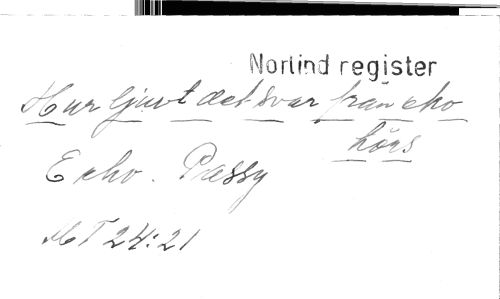 Norlind register
Hur ljuvt det svar från eko
hörs
Echo. Passy
MT 24:21